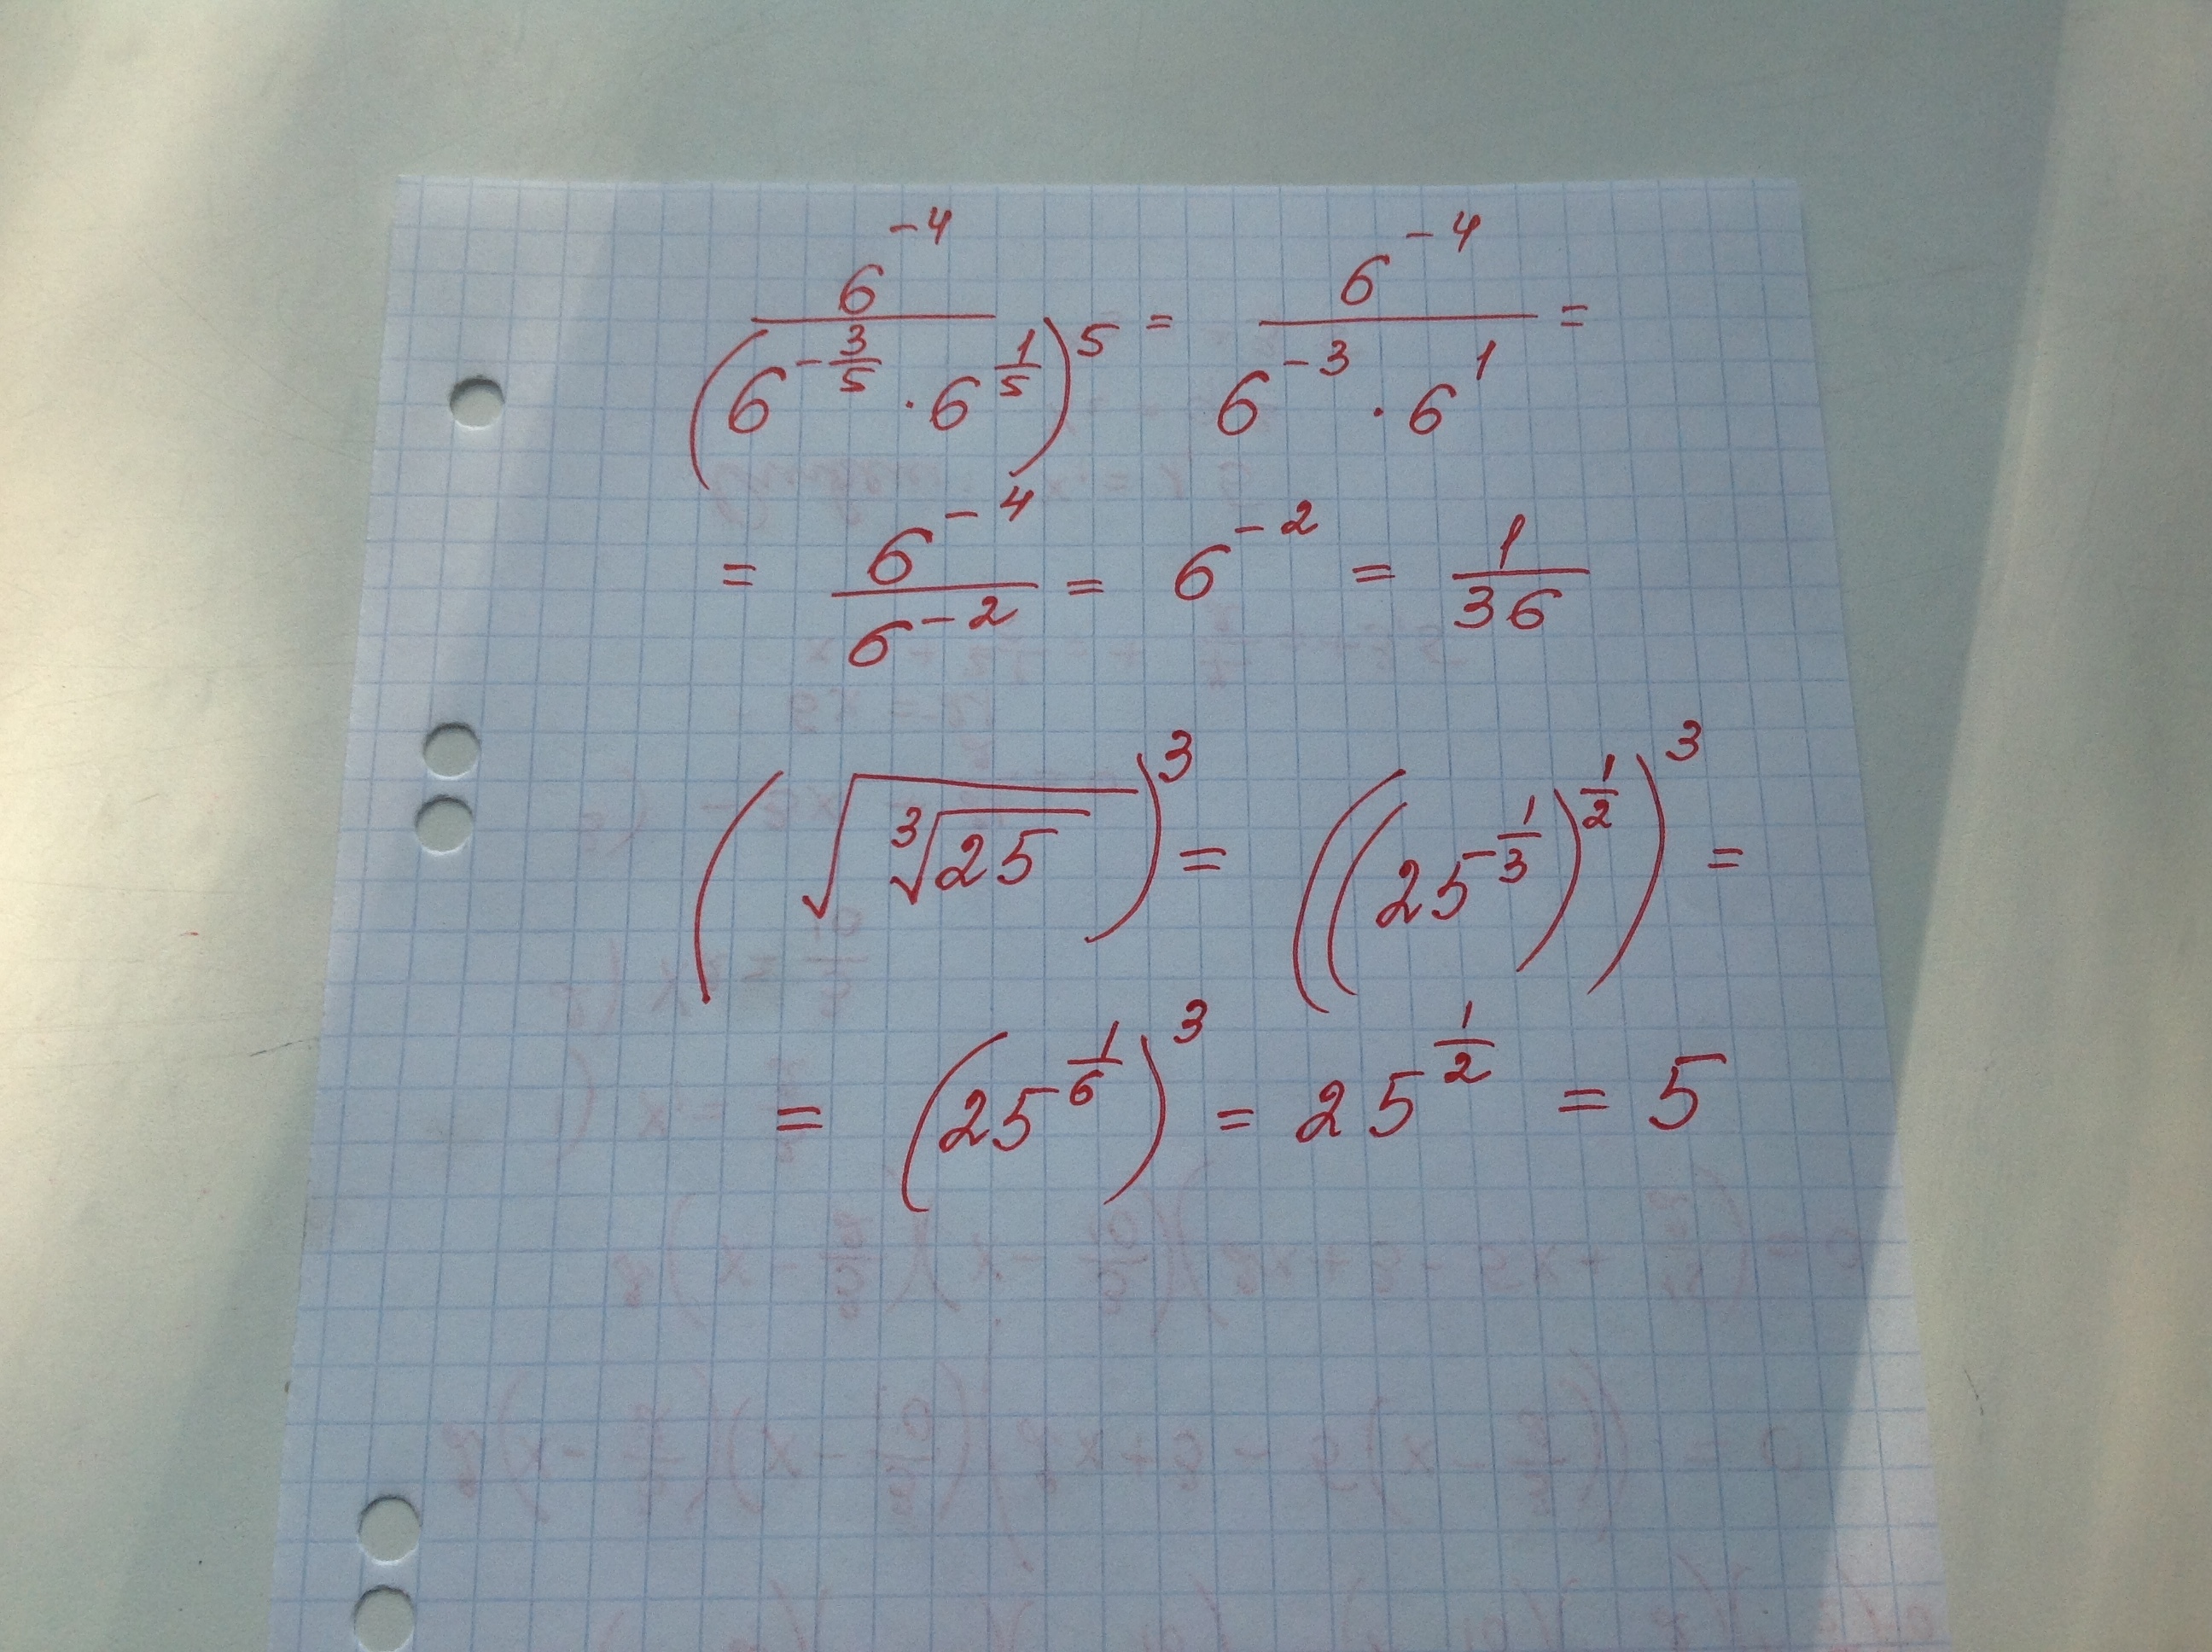 6^{-4} / (6^{-3/5} · 6^{1/5})^5 = 6^{-4} / (6^{-3} · 6^1) =
= 6^{-4} / 6^{-2} = 6^{-2} = 1/36
(√(∛25))^3 = ((25^{1/3})^{1/2})^3 =
= (25^{1/6})^3 = 25^{1/2} = 5